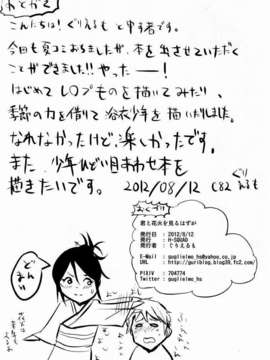 あとがき
こんにちは!ぐりえるもと申す者です。
今回も夏コミおちましたが、本を出させていただく
ことができました!!やったーー!
はじめて
ものを描いてみたり、
季節の力を借りて浴衣少年を描いたりしました。
なれなかったけど、楽しかったです。
また、少年ひどい目あわせ本を
描きたいです。 2012/08/12 C82 ぐりえるも
おくづけ
君と花火を見るはずが
発行日 : 2012/8/12
発行 : H-SQUAD
発行者 : ぐりえるも
E-Mail : guglielmo_hs@yahoo.co.jp
URL : http://guriblog.blog39.fc2.com/
PIXIV : 704774
Twitter : guglielmo_hs